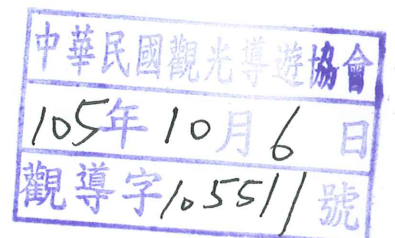 中華民國觀光導遊協會
105年10月6日
觀導字105511號